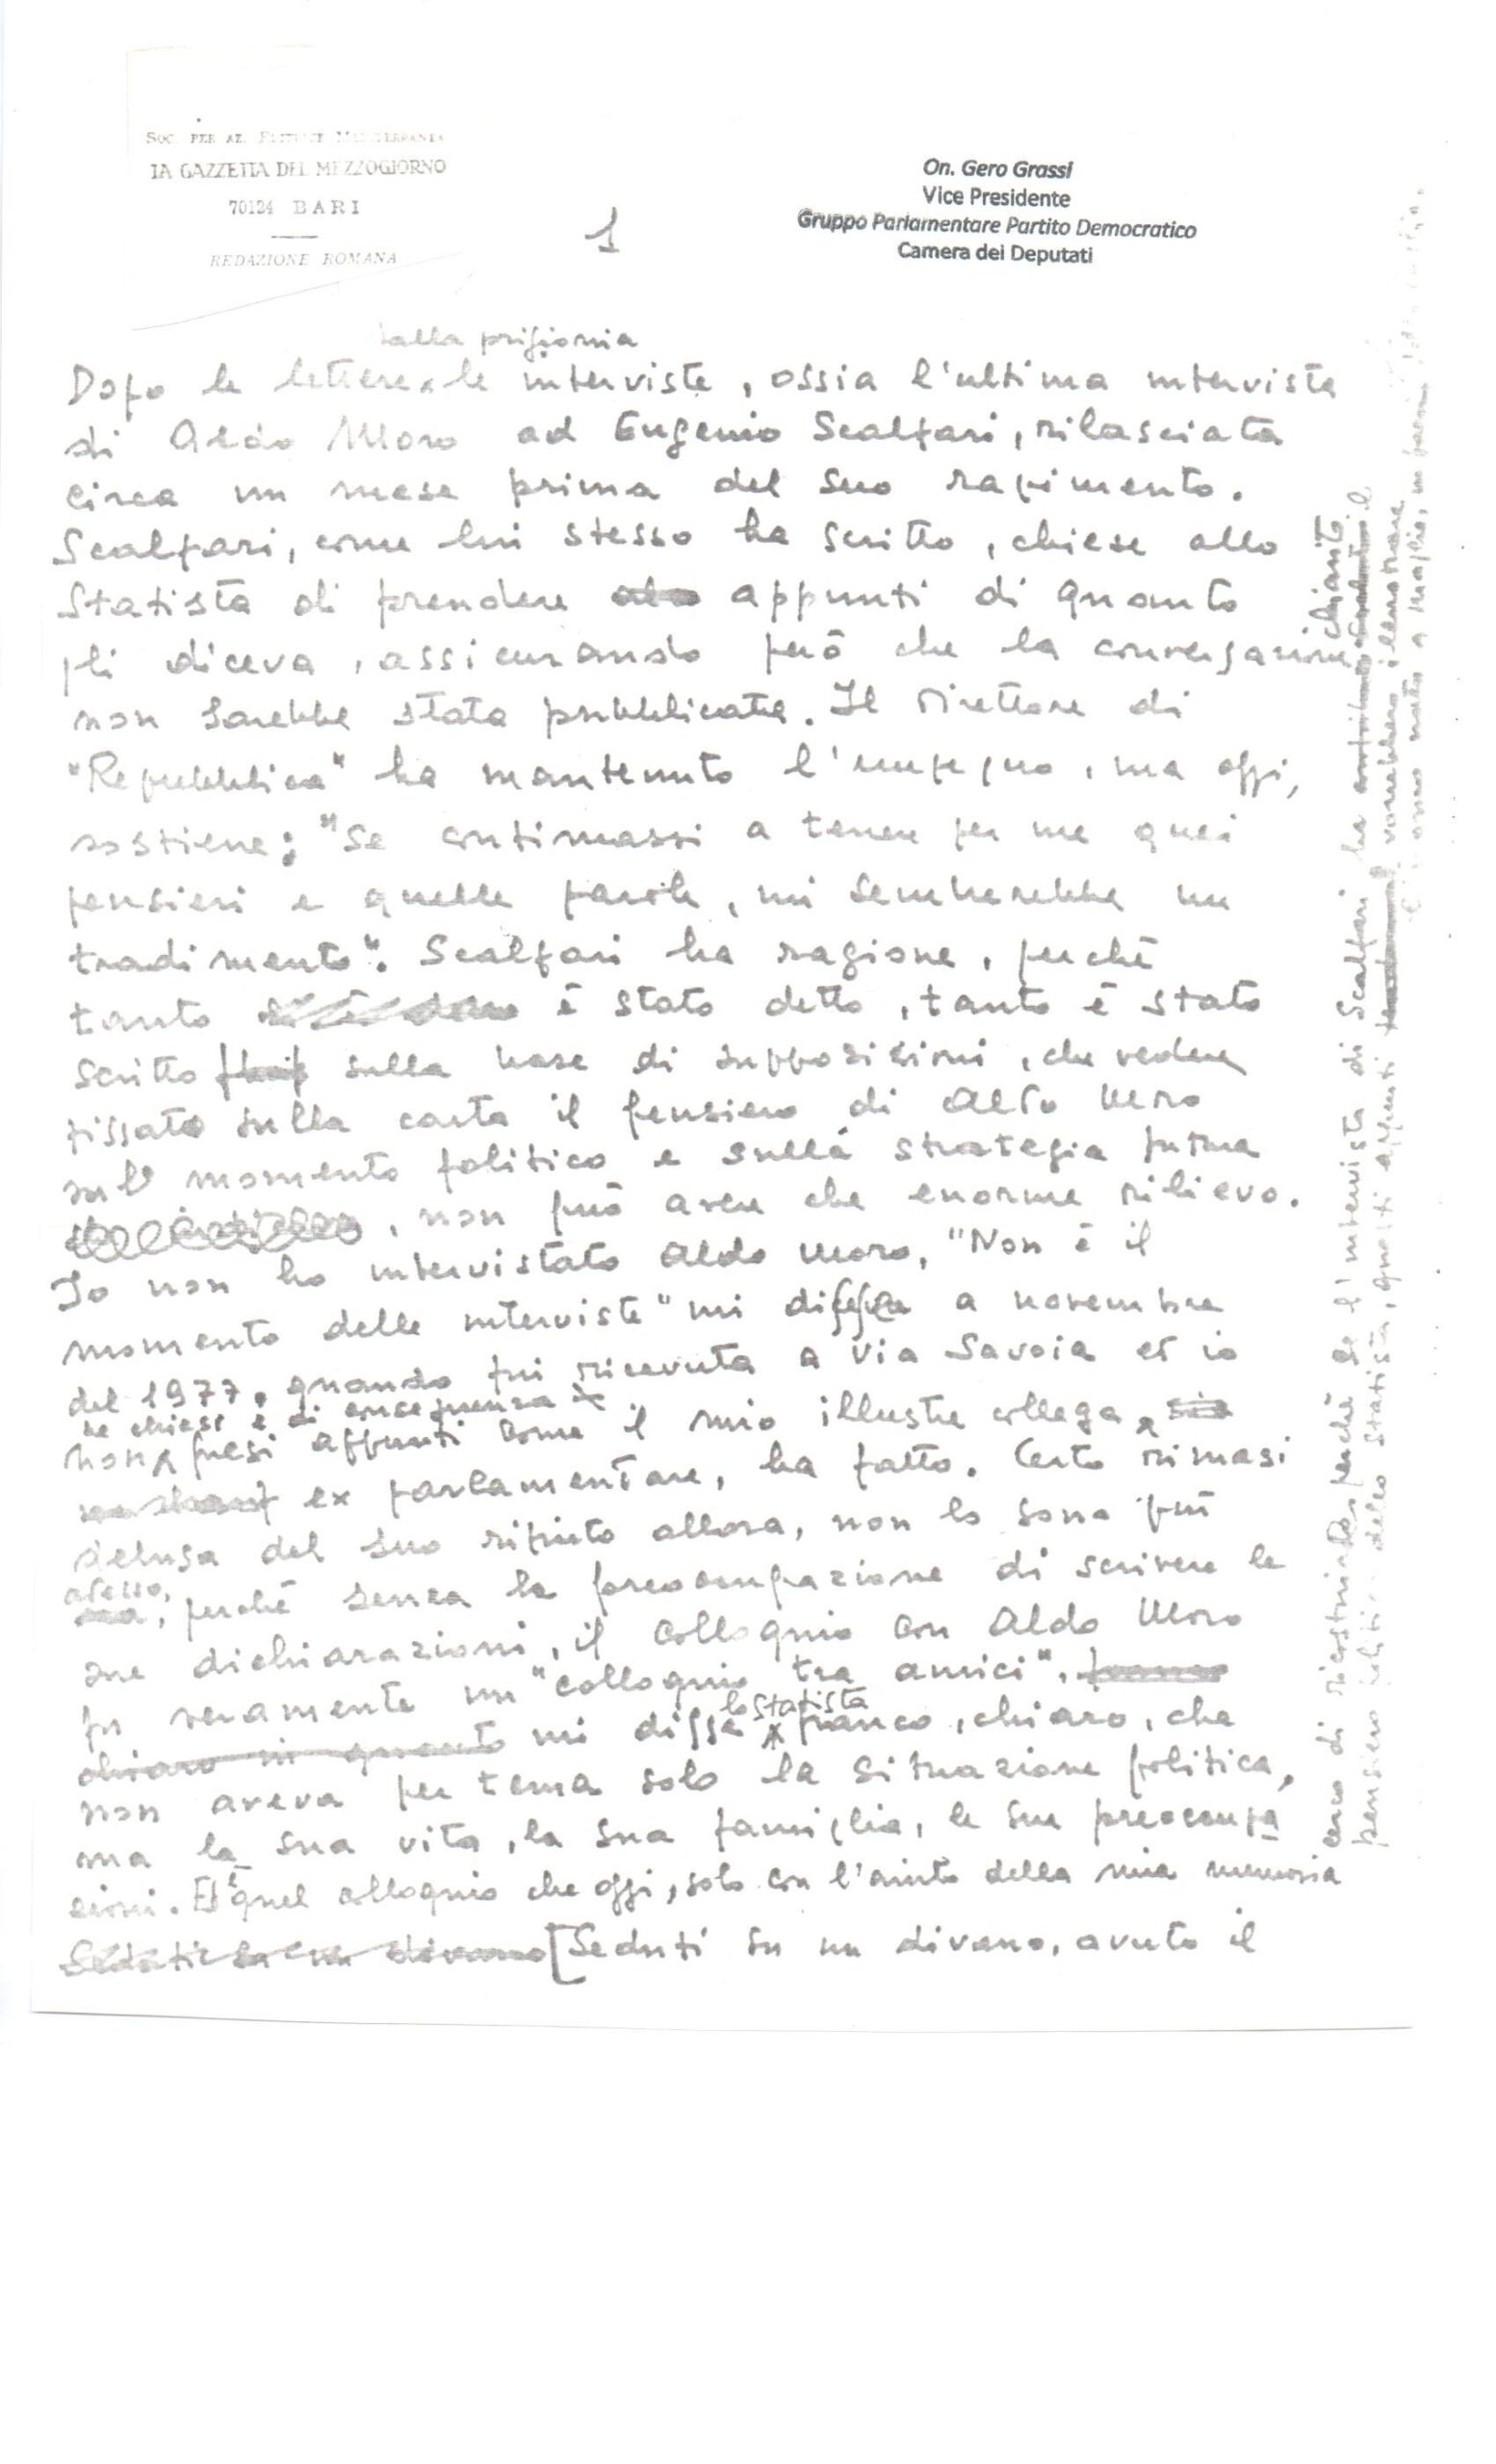 SOC. PER AZ. EDITRICE MEDITERRANEA
LA GAZZETTA DEL MEZZOGIORNO
70124 BARI
REDAZIONE ROMANA
1
On. Gero Grassi
Vice Presidente
Gruppo Parlamentare Partito Democratico
Camera dei Deputati
dalla prigionia
Dopo le lettere le interviste, ossia l'ultima intervista
di Aldo Moro ad Eugenio Scalfari, rilasciata
circa un mese prima del suo rapimento.
Scalfari, come lui stesso ha scritto, chiese allo
Statista di prendere appunti di quanto
gli diceva, assicurando però che la conversazione
non sarebbe stata pubblicata. Il Direttore di
"Repubblica" ha mantenuto l'impegno, ma oggi,
sostiene: "Se continuassi a tenere per me quei
pensieri e quelle parole, mi sembrerebbe un
tradimento". Scalfari ha ragione, perché
tanto è stato detto, tanto è stato
scritto sulla base di supposizioni, che vedere
fissato sulla carta il pensiero di Aldo Moro
sul momento politico e sulla strategia futura
, non può avere che enorme rilievo.
Io non ho intervistato Aldo Moro, "Non è il
momento delle interviste" mi disse a novembre
del 1977, quando fui ricevuta a Via Savoia ed io
ne chiesi e di conseguenza
non presi appunti come il mio illustre collega,
ex parlamentare, ha fatto. Certo rimasi
delusa del suo rifiuto allora, non lo sono più
adesso,
perché senza la preoccupazione di scrivere le
sue dichiarazioni, il colloquio con Aldo Moro
fu veramente un "colloquio tra amici",
lo statista
mi disse franco, chiaro, che
non aveva per tema solo la situazione politica,
ma la sua vita, la sua famiglia, le sue preoccupa
zioni. Ed è quel colloquio che oggi, solo con l'aiuto della mia memoria
[Seduti su un divano, avuto il
cerco di ricostruire perché se l'intervista di Scalfari ha chiarito
pensiero dello Statista, questi appunti vorrebbero illustrare